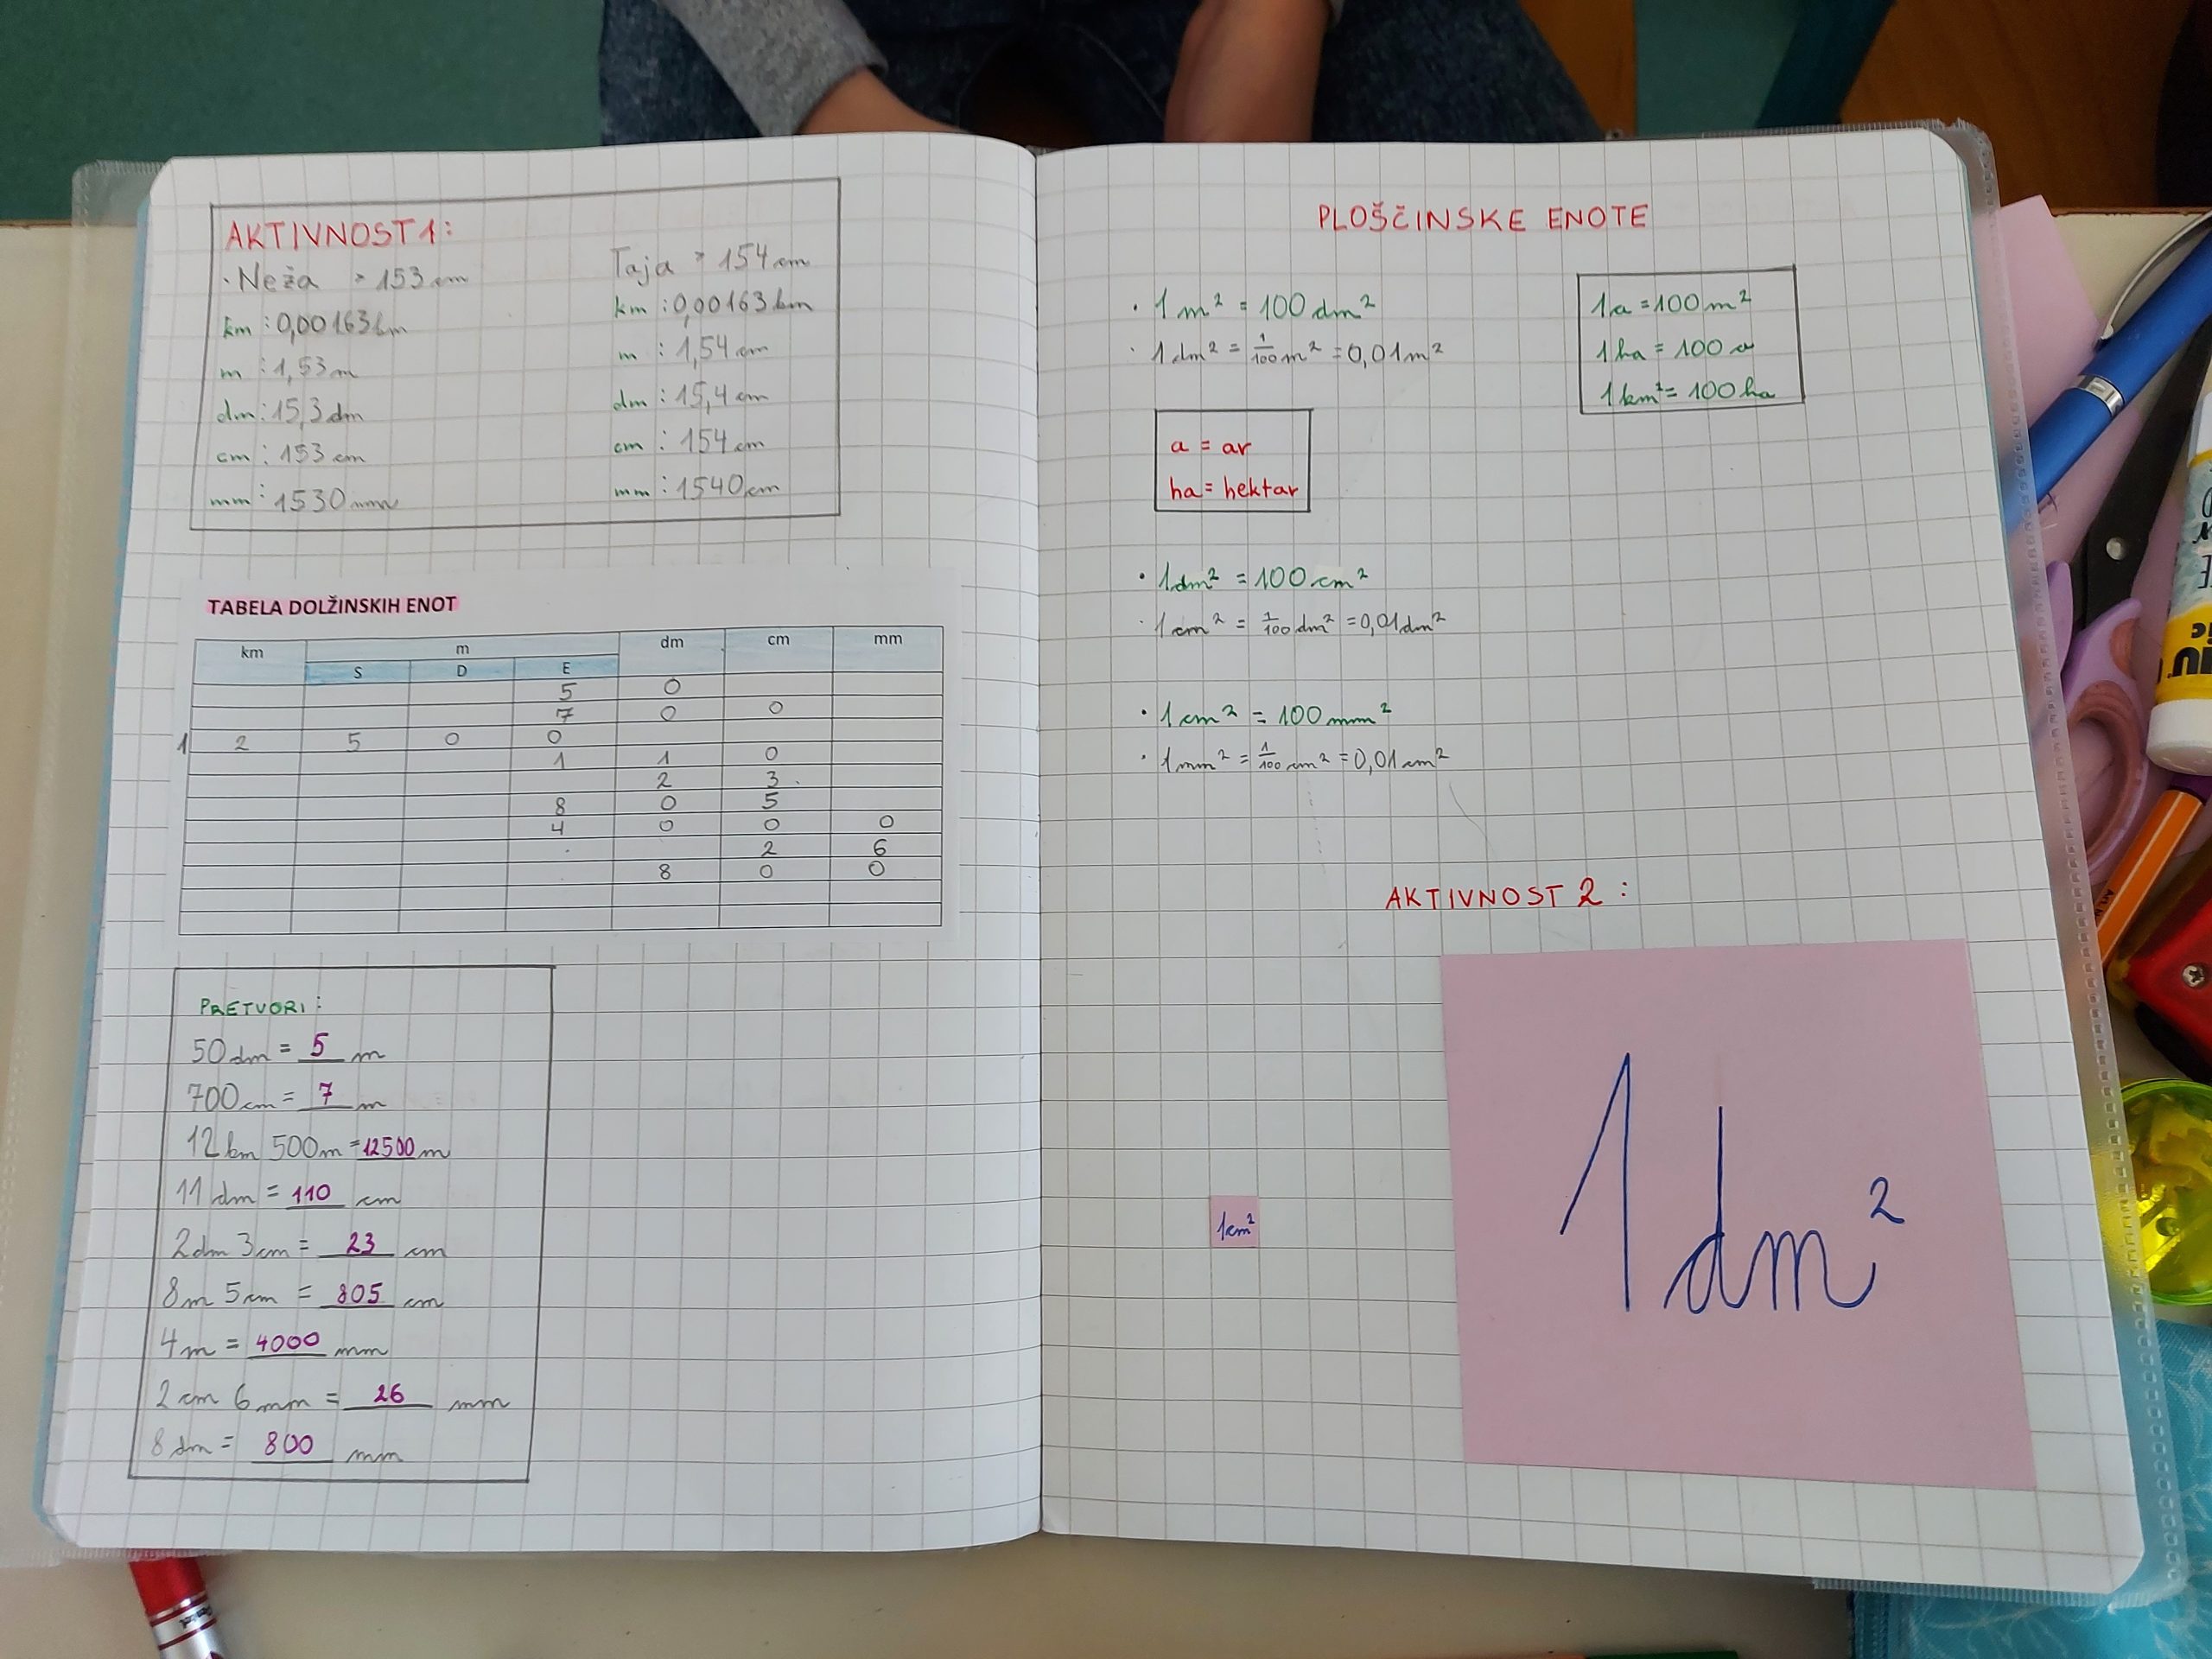 AKTIVNOST 1:
· Neža > 153 cm
km : 0,00163 km
m : 1,53 m
dm : 15,3 dm
cm : 153 cm
mm : 1530 mm
Taja > 154 cm
km : 0,00163 km
m : 1,54 cm
dm : 15,4 cm
cm : 154 cm
mm : 1540 cm
TABELA DOLŽINSKIH ENOT
km m dm cm mm
S D E
5 0
7 0 0
1 2 5 0 0
1 1 0
2 3
8 0 5
4 0 0 0
2 6
8 0 0
PRETVORI:
50 dm = 5 m
700 cm = 7 m
12 km 500 m = 12500 m
11 dm = 110 cm
2 dm 3 cm = 23 cm
8 m 5 cm = 805 cm
4 m = 4000 mm
2 cm 6 mm = 26 mm
8 dm = 800 mm
PLOŠČINSKE ENOTE
· 1 m² = 100 dm²
· 1 dm² = 1/100 m² = 0,01 m²
1 a = 100 m²
1 ha = 100 a
1 km² = 100 ha
a = ar
ha = hektar
· 1 dm² = 100 cm²
· 1 cm² = 1/100 dm² = 0,01 dm²
· 1 cm² = 100 mm²
· 1 mm² = 1/100 cm² = 0,01 cm²
AKTIVNOST 2 :
1 cm²
1 dm²